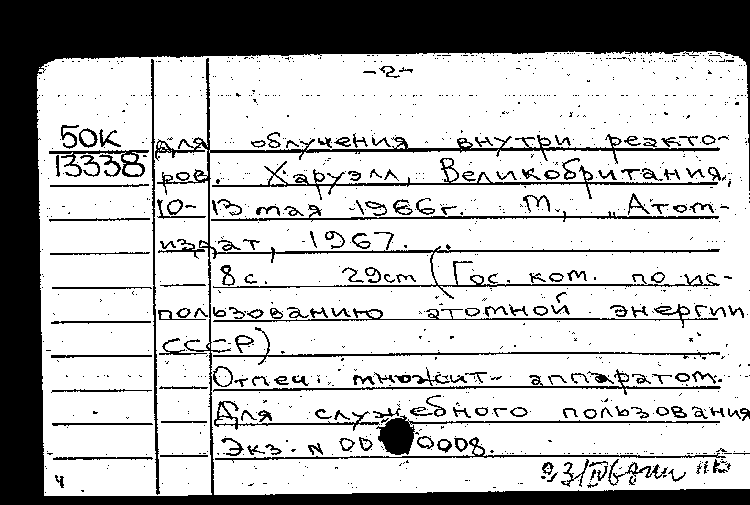 -2-
50К для облучения внутри реакто-
13338 ров. Харуэлл, Великобритания,
10-13 мая 1966г. М., „Атом-
издат, 1967.
8 с. 29см (Гос. ком. по ис-
пользованию атомной энергии
СССР).
Отпеч. множит- аппаратом.
Для служебного пользования
Экз. N 00 0008.
23/IV
ч